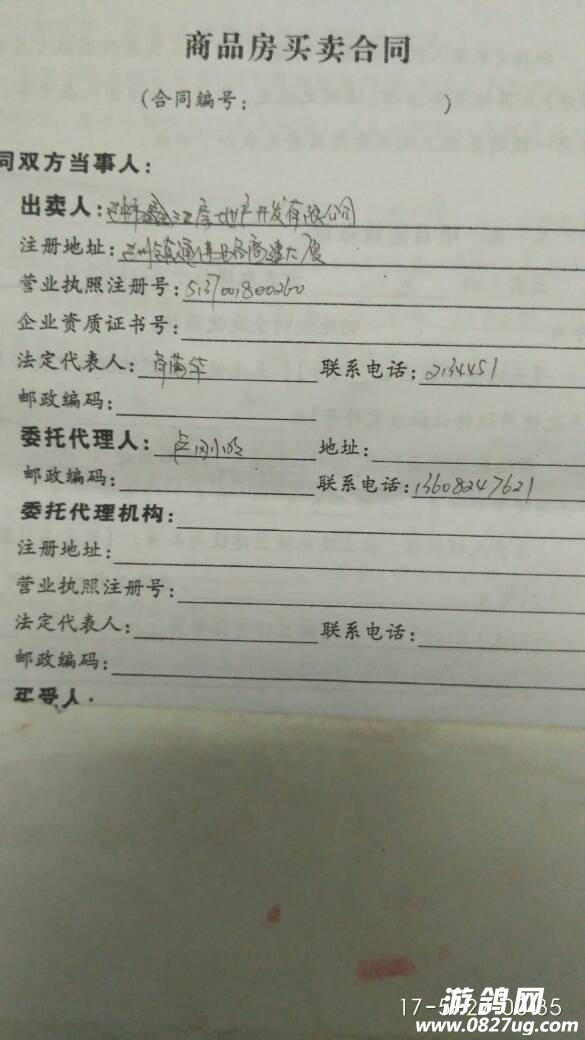 商品房买卖合同
(合同编号: )
同双方当事人:
出卖人: 房地产开发有限公司
注册地址:
营业执照注册号: 5137001800260
企业资质证书号:
法定代表人: 联系电话: 2134451
邮政编码:
委托代理人: 地址:
邮政编码: 联系电话: 13608247621
委托代理机构:
注册地址:
营业执照注册号:
法定代表人: 联系电话:
邮政编码:
买受人:
游鸽网
www.0827ug.com